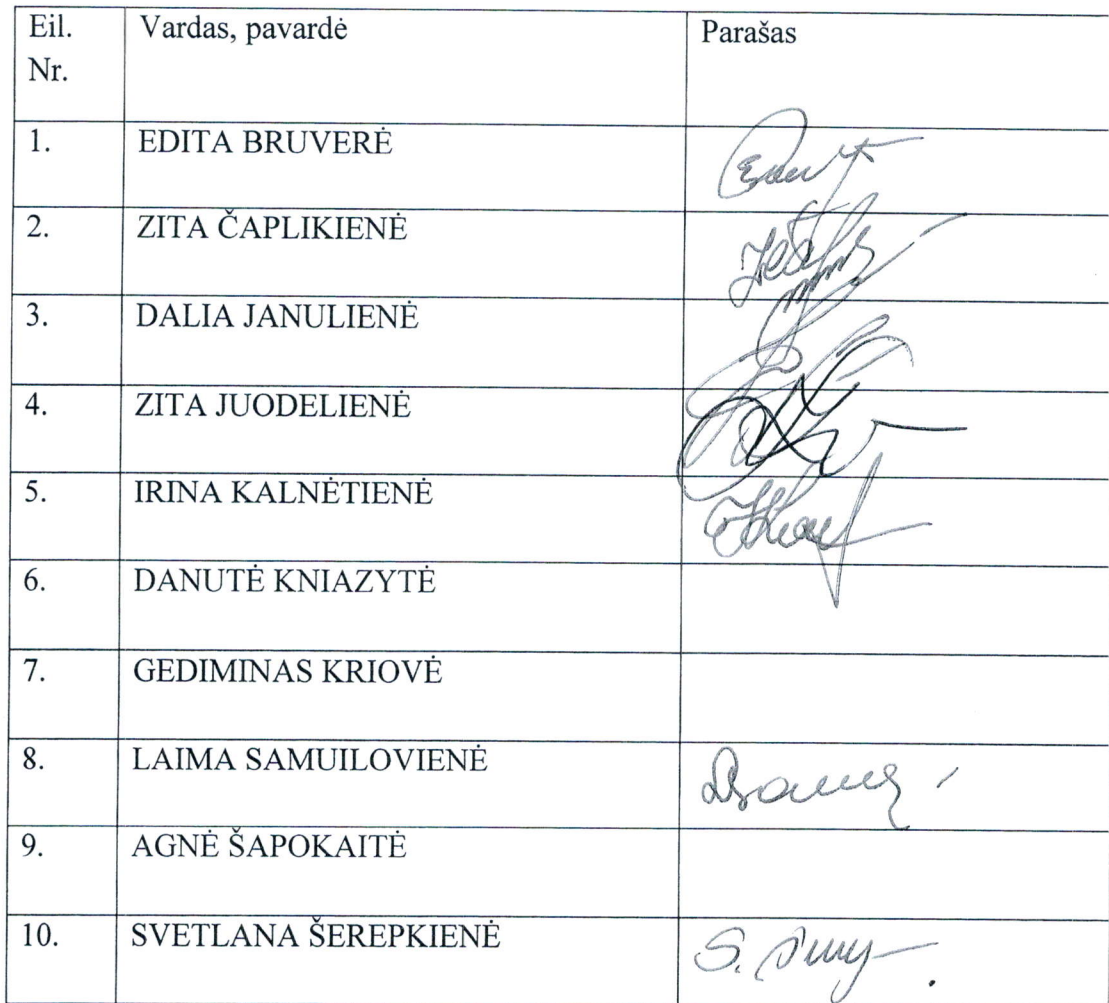 Eil. Vardas, pavardė Parašas
Nr.
1. EDITA BRUVERĖ
2. ZITA ČAPLIKIENĖ
3. DALIA JANULIENĖ
4. ZITA JUODELIENĖ
5. IRINA KALNĖTIENĖ
6. DANUTĖ KNIAZYTĖ
7. GEDIMINAS KRIOVĖ
8. LAIMA SAMUILOVIENĖ
9. AGNĖ ŠAPOKAITĖ
10. SVETLANA ŠEREPKIENĖ